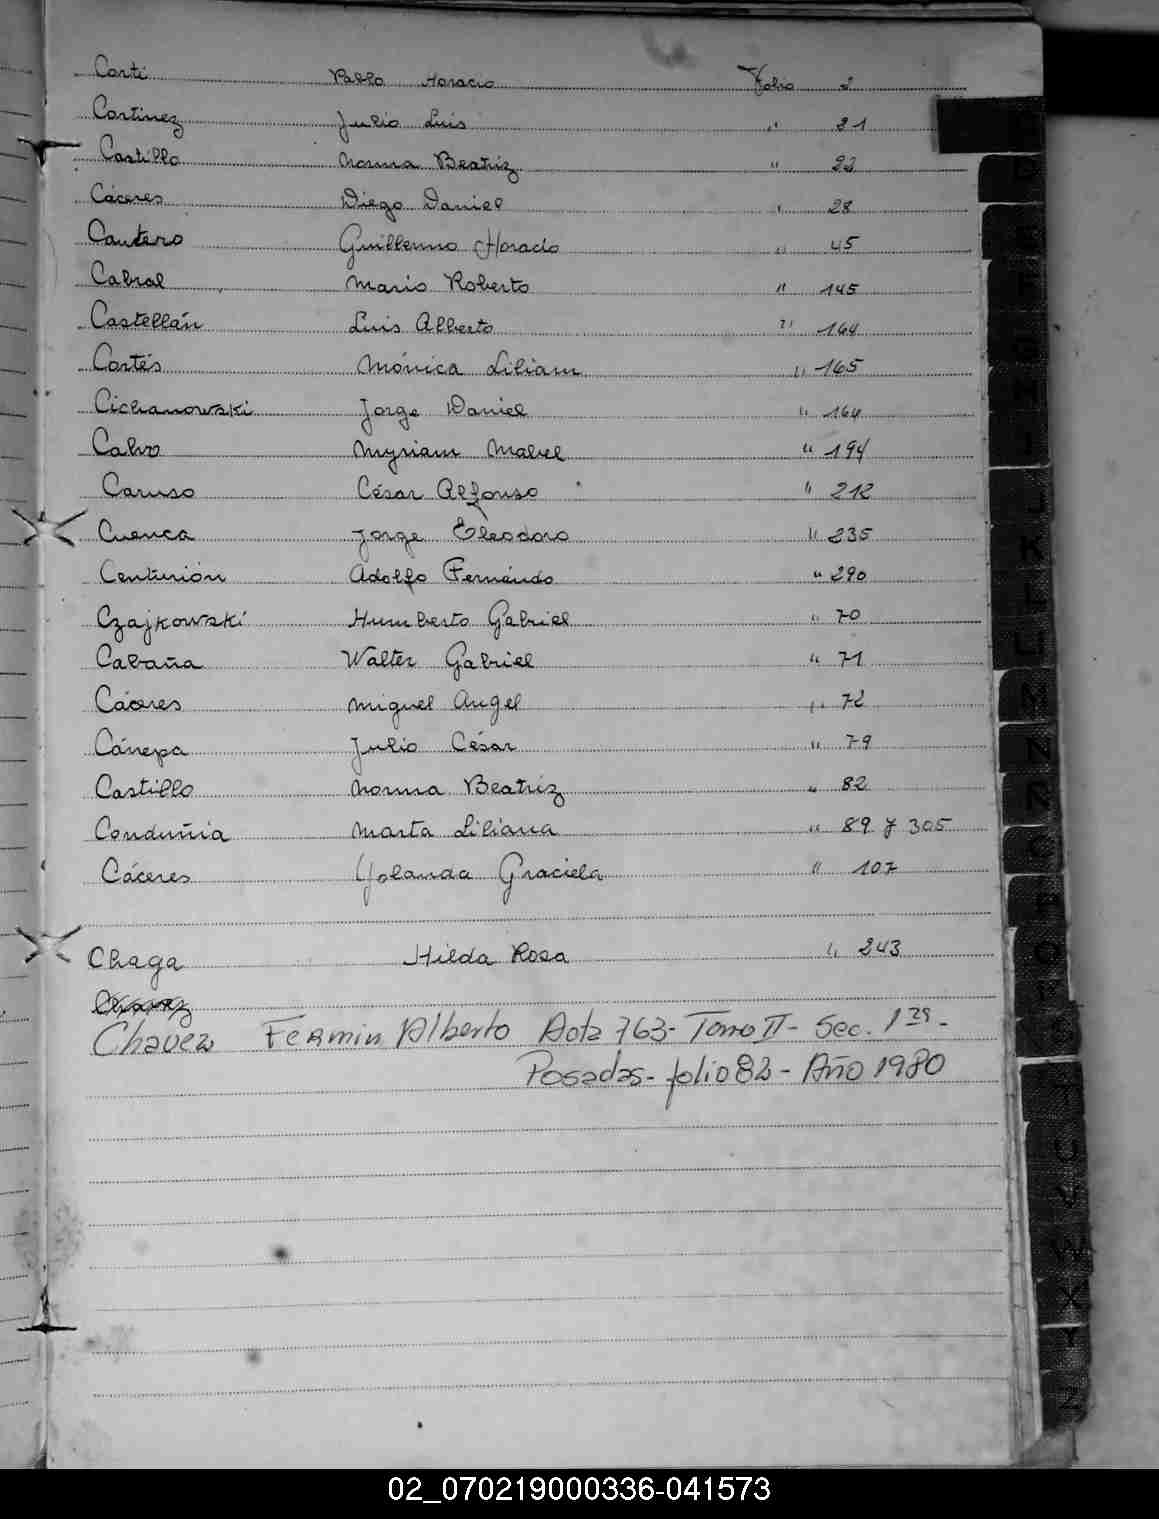 Corti Pablo Horacio Folio 2
Cortinez Julio Luis " 21
Castillo Norma Beatriz " 22
Cáceres Diego Daniel " 28
Cantero Guillermo Horacio " 45
Cabral Mario Roberto " 145
Castellán Luis Alberto " 164
Cortés Mónica Liliam " 165
Cichanowski Jorge Daniel " 164
Calvo Myriam Mabel " 194
Caruso César Alfonso " 212
Cuenca Jorge Eleodoro " 235
Centurión Adolfo Fernando " 290
Czajkowski Humberto Gabriel " 70
Cabaña Walter Gabriel " 71
Cáceres Miguel Angel " 72
Cánepa Julio César " 79
Castillo Norma Beatriz " 82
Marta Liliana " 89 y 305
Cáceres Yolanda Graciela " 107
Chaga Hilda Rosa " 243
Chavez
Chavez Fermin Alberto Acta 763 - Tomo II - Sec. 1ra -
Posadas - folio 82 - Año 1980
02_070219000336-041573